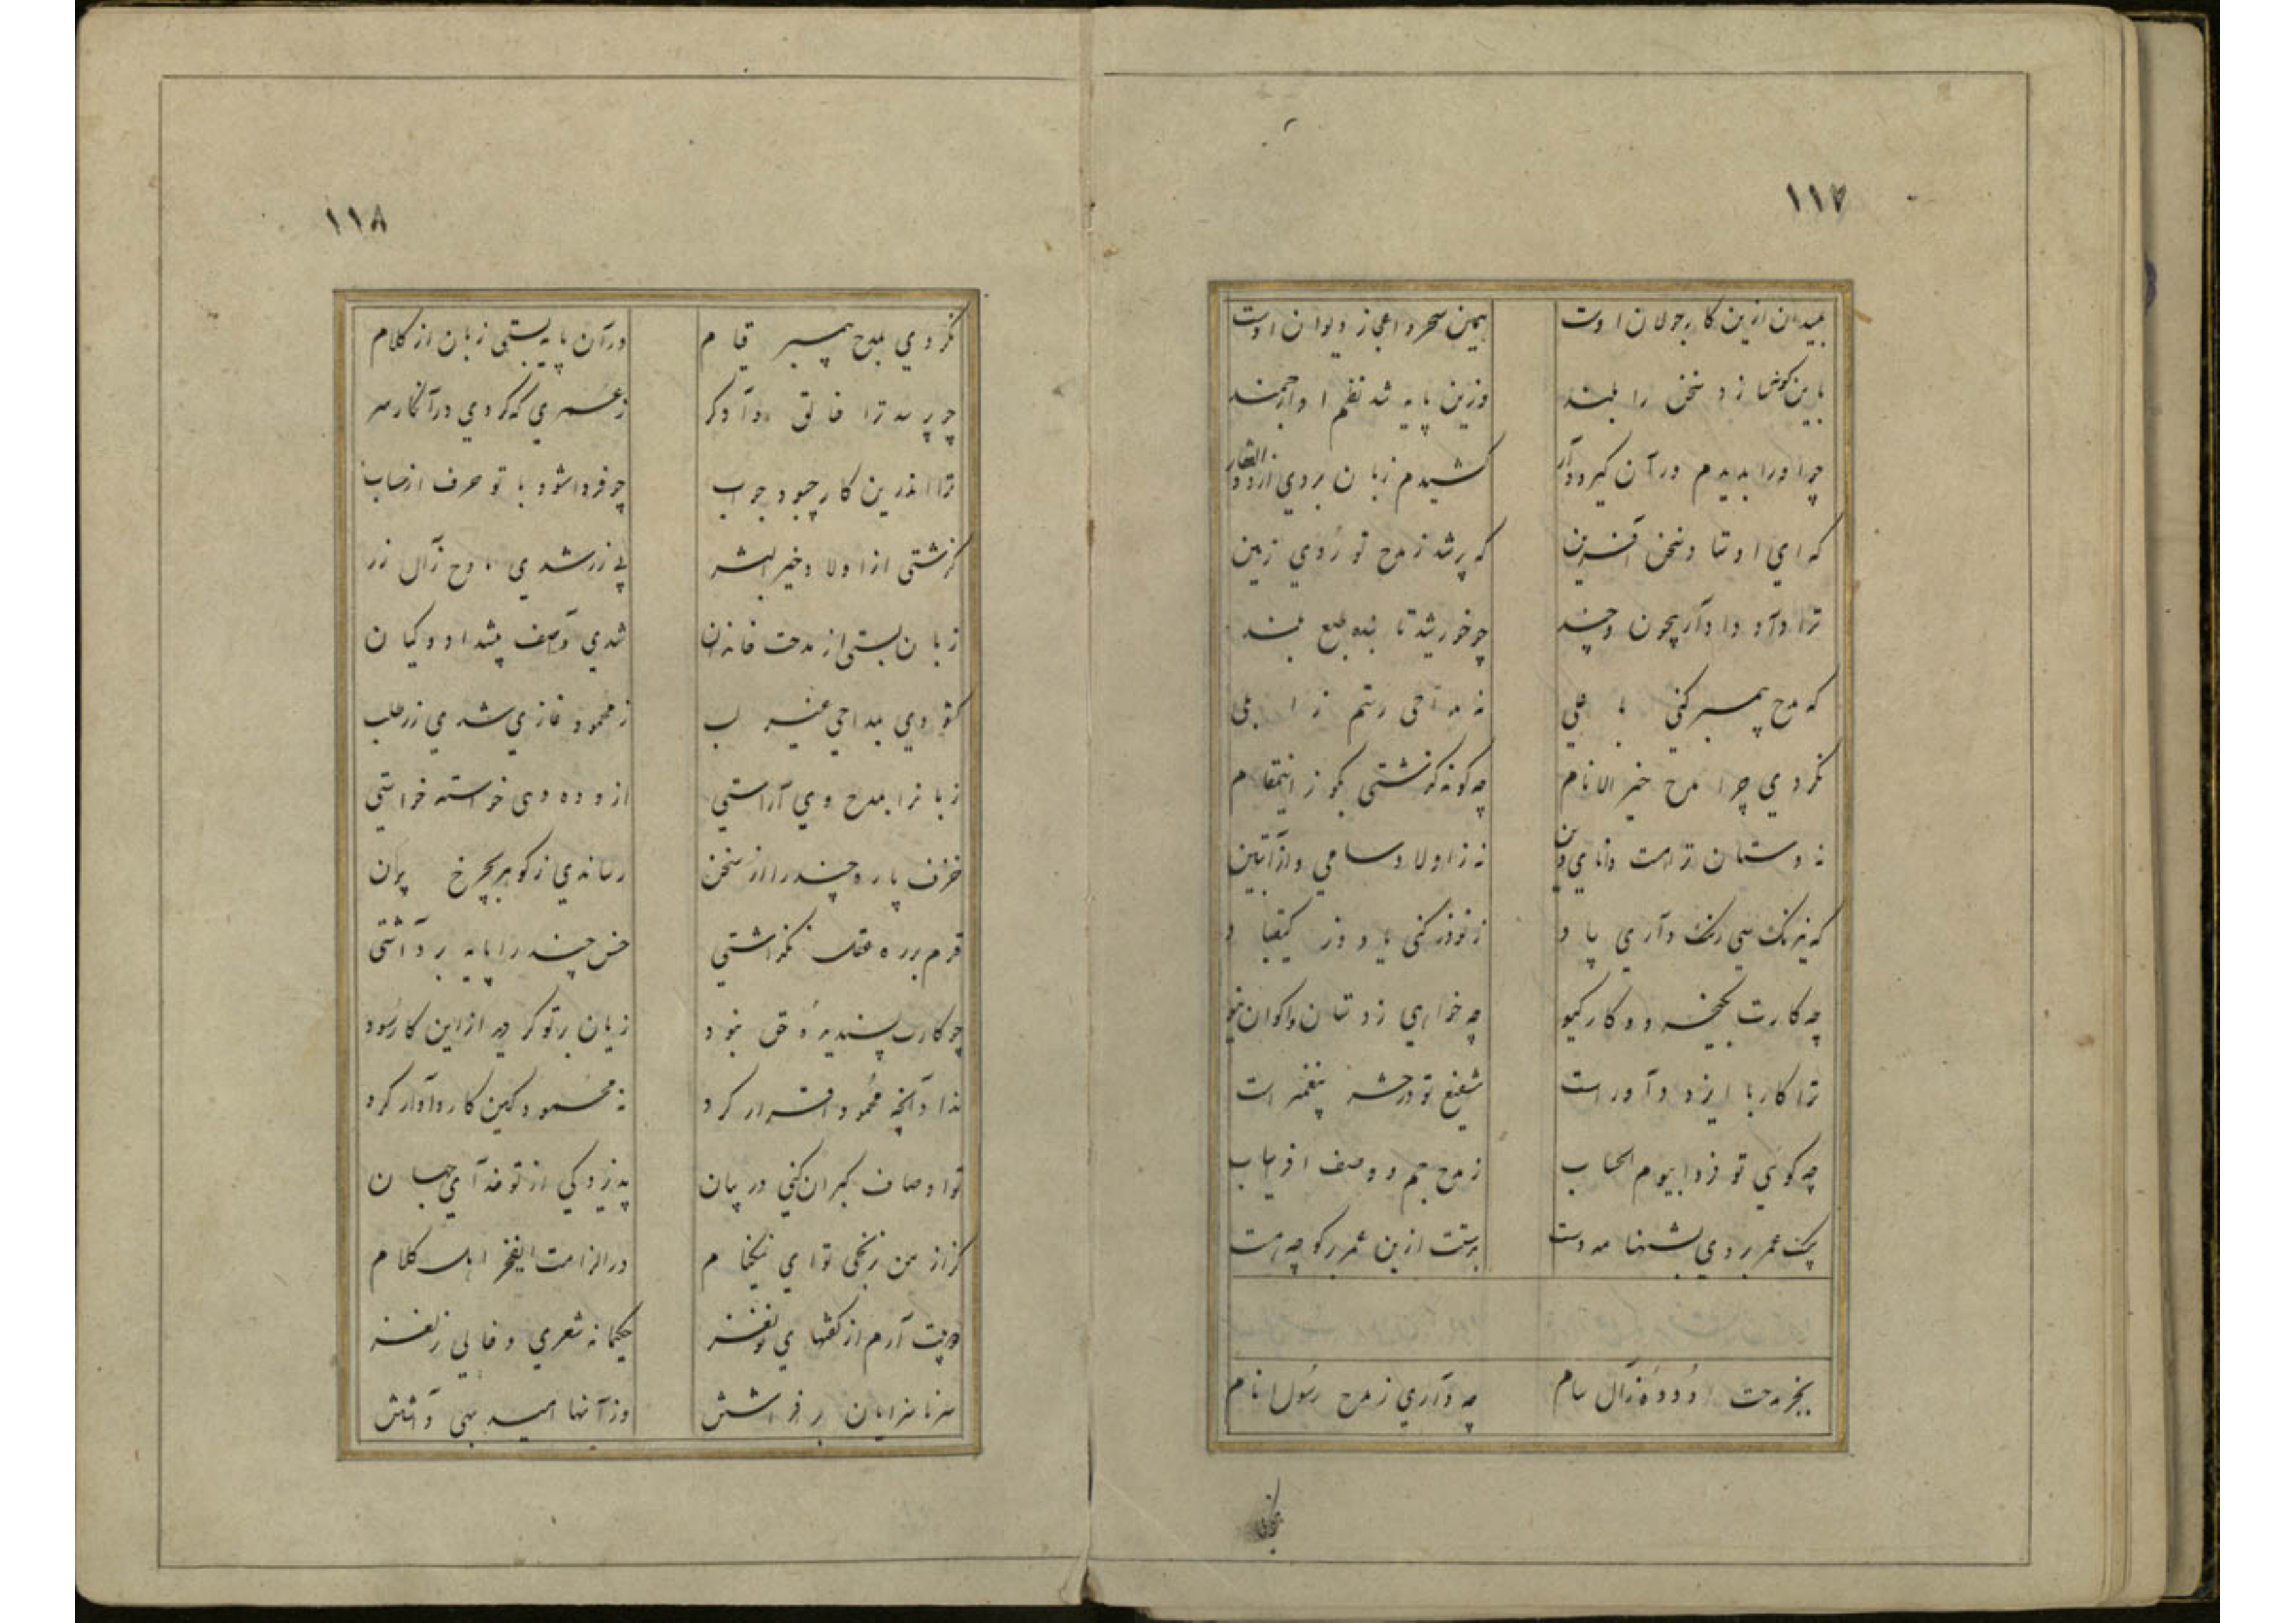 ١١٧
بمیدان ازین کار جولان اوست همین سحر و اعجاز دیوان اوست
باین کونها زد سخن را بلند وزین پایه شد نظم او ارجمند
چو اورا بدیدم در آن کیرودار کشیدم زبان بروی از ذو الفقار
که ای اوستاد سخن آفرین که پر شد ز مدح تو رُوی زمین
ترا داد دادار بیچون وچند چو خورشید تابنده طبع بلند
که مدح پیمبر کنی با علی نه مداحی رستم زابلی
نکردی چرا مدح خیر الانام چه کونه کذشتی بکو ز اینمقام
نه دستان تراست دانای دین نه زاولاد سامی واز آتبین
که نیرنک سی رنک داری بیاد ز نوذر کنی یاد وز کیقباد
چه کارت بکیخسرو و کار کیو چه خواهی ز دستان واکوان دیو
ترا کار با ایزد داور است شفیع تو در حشر پیغمبر است
چه کوئی تو فردا بیوم الحساب ز مدح جم و وصف افریاب
یک عمر بردی بشنها مه دست بدستت ازین عمر بر کو چه است
بخر مدحت دُودهٔ زال سام چه داری ز مدح رسُول انام
١١٨
نکردی بمدح پیمبر قیام در آن پایه بستی زبان از کلام
چو پرسد ترا خالق دادکر ز عمری که کردی در آنکار سر
ترا اندرین کار چبود جواب چو فردا شود با تو حرف از حساب
کذشتی از اولاد خیر البشر پی زر شدی مادح زال زر
زبان بستی از مدحت خاندان شدی واصف پیشداد و کیان
کشودی بمداحی غیر لب ز محمود غازی شدی زر طلب
زبانرا بمدح وی آراستی از و ده دهی خواسته خواستی
خزف پاره چند را از سخن رساندی ز کوهر بچرخ پرن
قدم بر ره عقل نکذاشتی خس چند را پایه برداشتی
چو کارت پسندیدهٔ حق نبود زیان بر تو کردید از این کار سُود
نداد آنچه محمُود اقرار کرد نه محمود کین کار دادار کرد
تو اوصاف کبران کنی در بیان به نزدیکی از تو خدای جهان
کر از من نرنجی تو ای نیکنام در الزامت ایفخر اهل کلام
بدیت آرم از کفتهای تو نغز حکیمانه شعری و خالی ز لغز
سر ناسزایان بر افراشتن وز آنها امید بهی داشتن